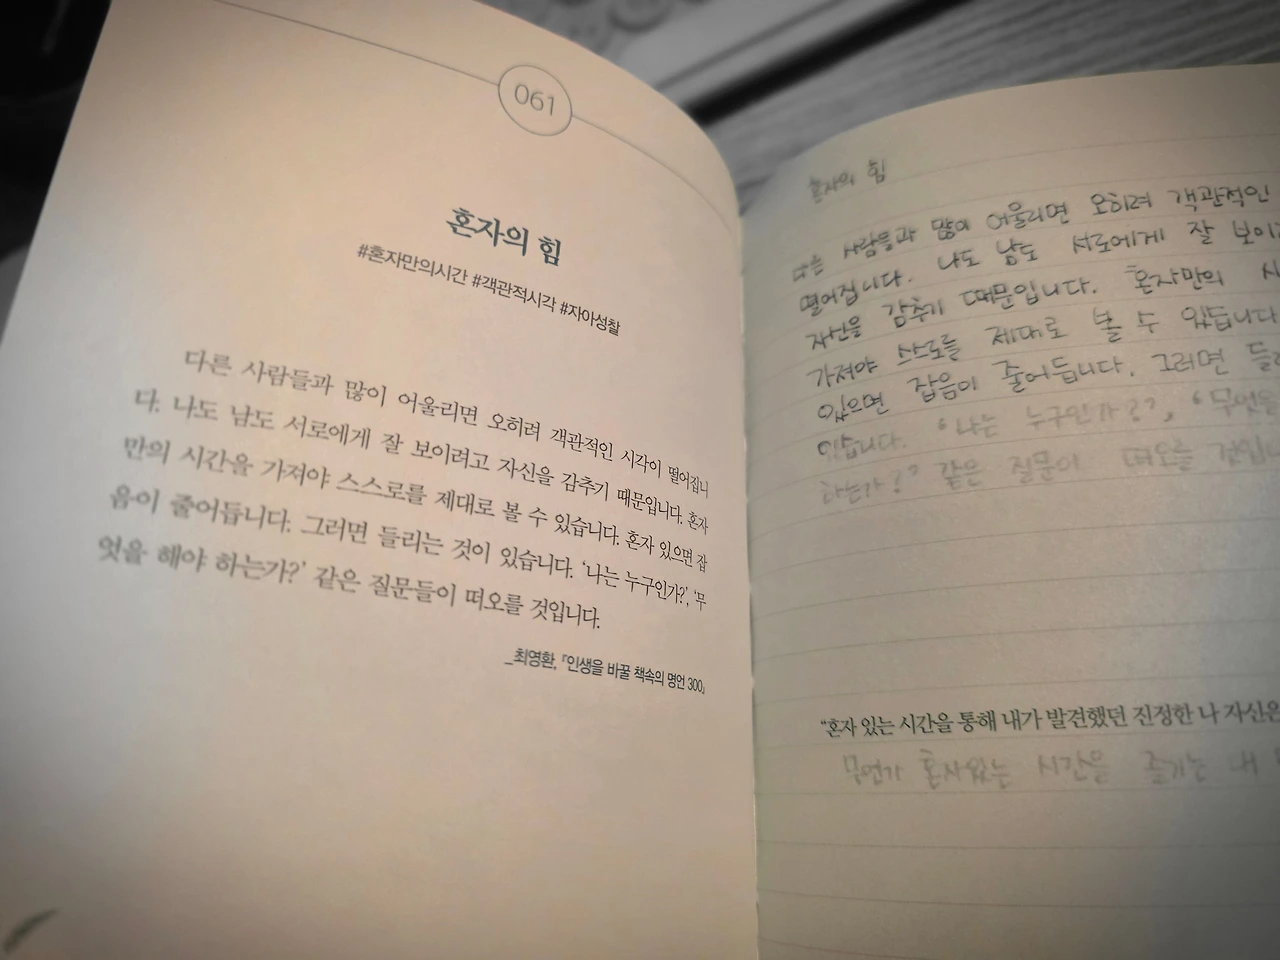 061
혼자의 힘
#혼자만의시간 #객관적시각 #자아성찰
다른 사람들과 많이 어울리면 오히려 객관적인 시각이 떨어집니
다. 나도 남도 서로에게 잘 보이려고 자신을 감추기 때문입니다. 혼자
만의 시간을 가져야 스스로를 제대로 볼 수 있습니다. 혼자 있으면 잡
음이 줄어듭니다. 그러면 들리는 것이 있습니다. ‘나는 누구인가?’, ‘무
엇을 해야 하는가?’ 같은 질문들이 떠오를 것입니다.
_최영환, 『인생을 바꿀 책속의 명언 300』
혼자의 힘
다른 사람들과 많이 어울리면 오히려 객관적인
떨어집니다. 나도 남도 서로에게 잘 보이
자신을 감추기 때문입니다. 혼자만의 시
가져야 스스로를 제대로 볼 수 있습니다
있으면 잡음이 줄어듭니다. 그러면 들
있습니다. ‘나는 누구인가?’, ‘무엇을
하는가?’ 같은 질문이 떠오를 것입니
“혼자 있는 시간을 통해 내가 발견했던 진정한 나 자신은
무언가 혼자있는 시간을 즐기는 내